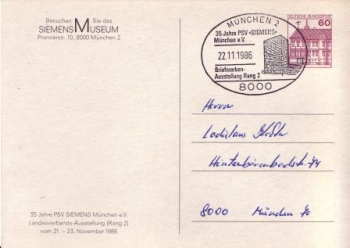 Besuchen Sie das
SIEMENS MUSEUM
Prannerstr. 10, 8000 München 2
MÜNCHEN 2
35 Jahre PSV »SIEMENS«
München e.V.
22.11.1986
Briefmarken-
Ausstellung Rang 2
8000
DEUTSCHE BUNDESPOST
60
Herrn
Ladislaus
8000 München 70
35 Jahre PSV SIEMENS München e.V.
Landesverbands-Ausstellung (Rang 2)
vom 21. - 23. November 1986